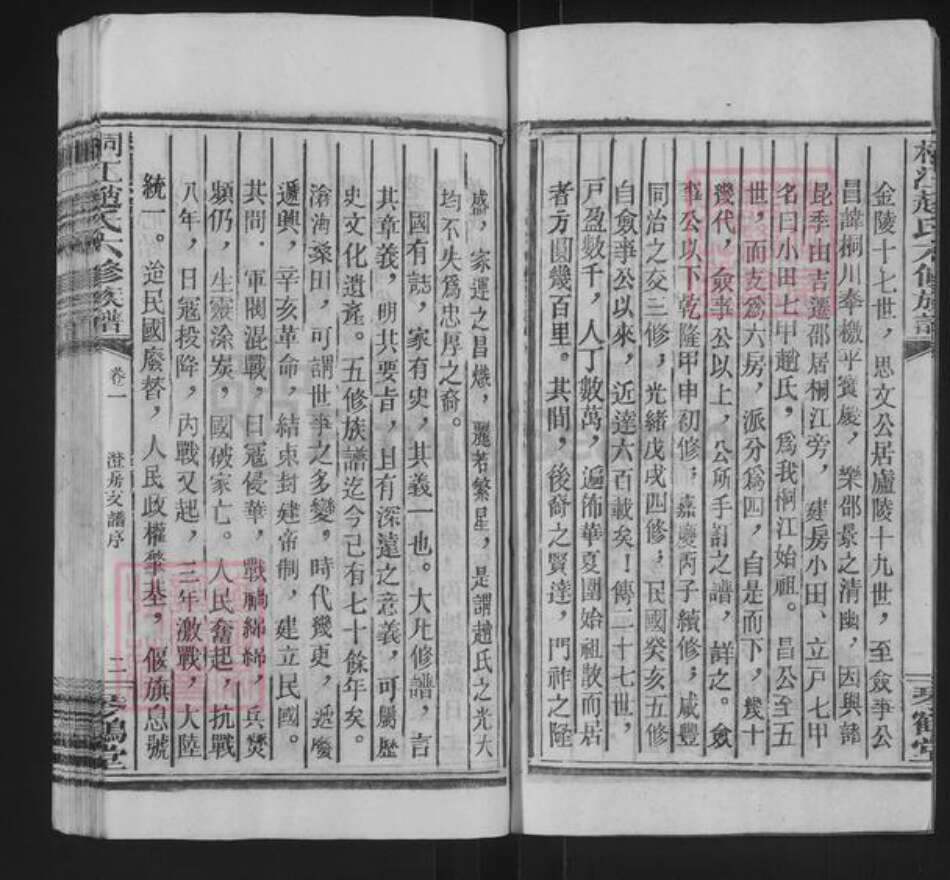 金陵十七世，思文公居廬陵十九世，至僉事公
昌諱桐川奉檄平寶慶，樂邵景之清幽，因與諸
昆季由吉遷邵居桐江旁，建房小田、立戸七甲
名曰小田七甲趙氏，爲我桐江始祖。昌公至五
世，而支爲六房，派分爲四，自是而下，幾十
幾代，僉事公以上，公所手訂之譜，詳之。僉
事公以下乾隆甲申初修，嘉慶丙子續修，咸豐
同治之交三修，光緒戊戌四修，民國癸亥五修
自僉事公以來，近達六百載矣！傳二十七世，
戸盈數千，人丁數萬，遍佈華夏圍始祖散而居
者方圓幾百里。其間，後裔之賢達，門祚之隆
盛，家運之昌熾，麗若繁星，是謂趙氏之光大
均不失爲忠厚之裔。
國有誌，家有史，其義一也。大凡修譜，言
其章義，明共要旨，且有深遠之意義，可屬歷
史文化遺產。五修族譜迄今己有七十餘年矣。
滄海桑田，可謂世事之多變，時代幾更，遞廢
遞興，辛亥革命，結束封建帝制，建立民國。
共間．軍閥混戰，日寇侵華，戰禍綿綿，兵燹
頻仍，生靈涂炭，國破家亡。人民奮起，抗戰
八年，日寇投降，內戰又起，三年激戰，大陸
統一。迨民國廢替，人民政權擎基，偃旗息號
桐江趙氏六修族譜
卷一
澄房支譜序
二
琴鶴堂